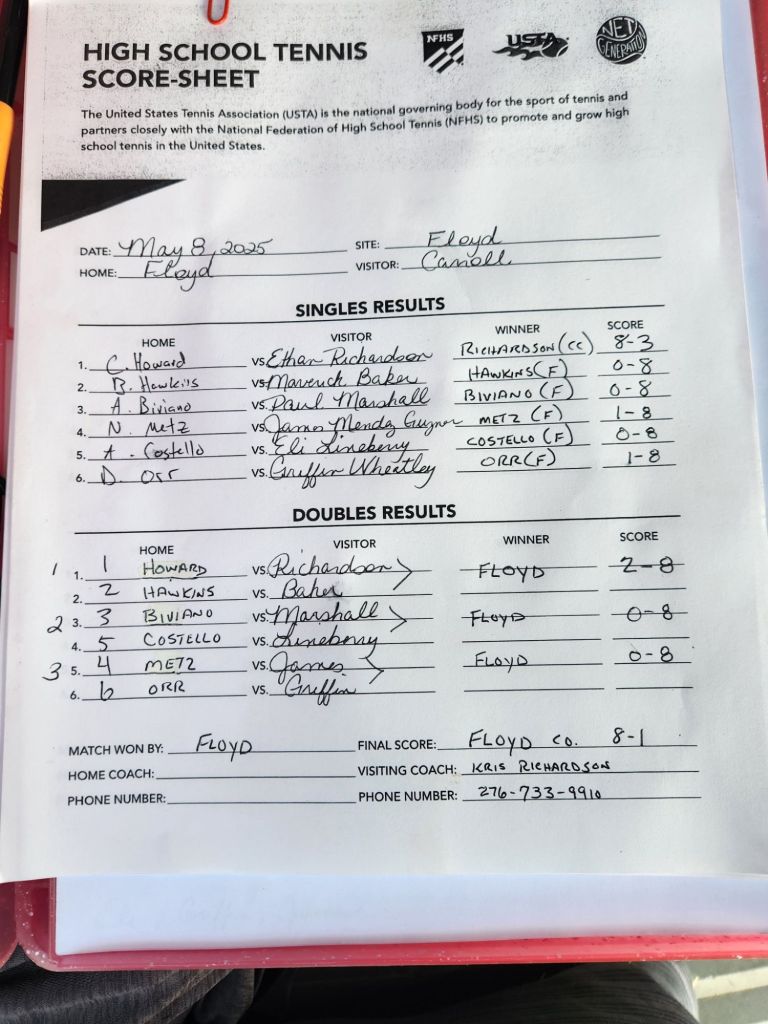 HIGH SCHOOL TENNIS
SCORE-SHEET
NFHS
USTA
NET GENERATION
The United States Tennis Association (USTA) is the national governing body for the sport of tennis and
partners closely with the National Federation of High School Tennis (NFHS) to promote and grow high
school tennis in the United States.
DATE: May 8, 2025 SITE: Floyd
HOME: Floyd VISITOR: Carroll
SINGLES RESULTS
HOME VISITOR WINNER SCORE
1. C. Howard VS. Ethan Richardson RICHARDSON (CC) 8-3
2. B. Hawkins VS. Maverick Baker HAWKINS (F) 0-8
3. A. Biviano VS. Paul Marshall BIVIANO (F) 0-8
4. N. Metz VS. James Mendez METZ (F) 1-8
5. A. Costello VS. Eli Lineberry COSTELLO (F) 0-8
6. D. Orr VS. Griffin Wheatley ORR (F) 1-8
DOUBLES RESULTS
HOME VISITOR WINNER SCORE
1 1. 1 HOWARD VS. Richardson FLOYD 2-8
2. 2 HAWKINS VS. Baker
2 3. 3 BIVIANO VS. Marshall FLOYD 0-8
4. 5 COSTELLO VS. Lineberry
3 5. 4 METZ VS. James FLOYD 0-8
6. 6 ORR VS. Griffin
MATCH WON BY: FLOYD FINAL SCORE: FLOYD CO. 8-1
HOME COACH: VISITING COACH: KRIS RICHARDSON
PHONE NUMBER: PHONE NUMBER: 276-733-9910